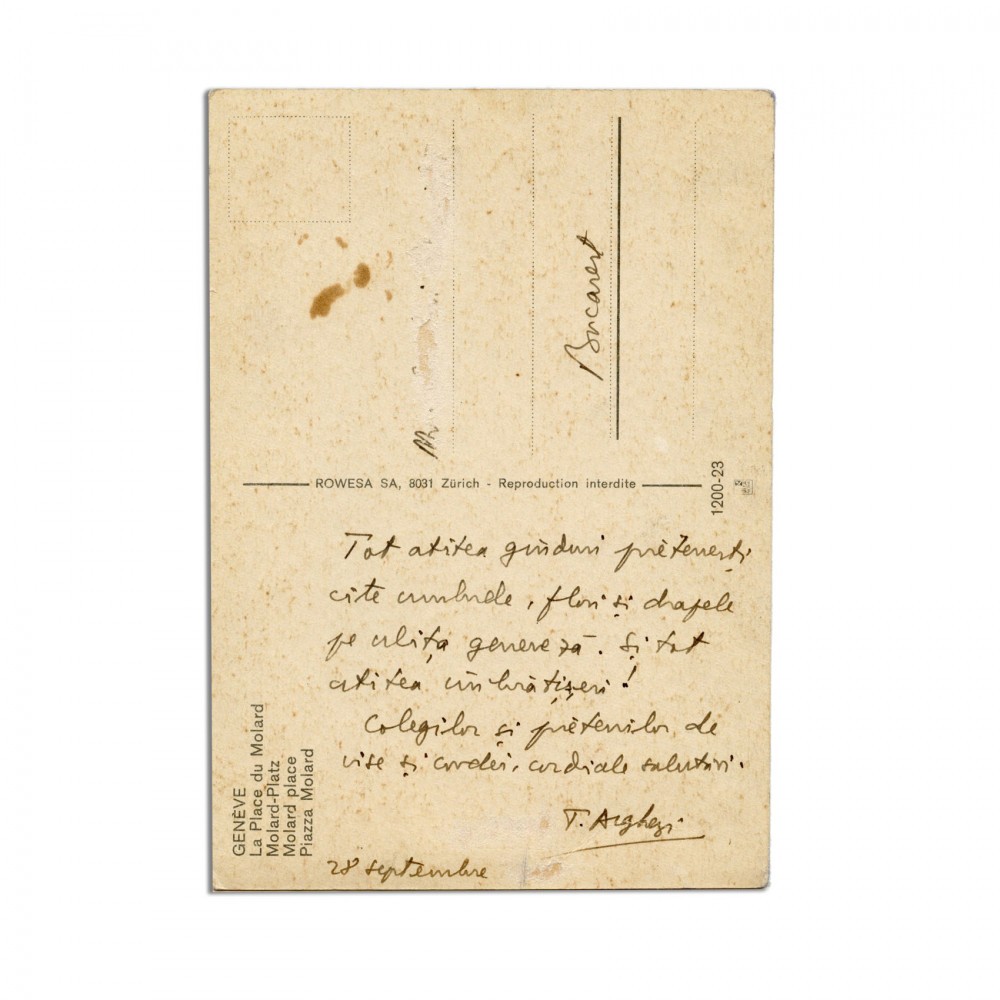 Bucarest
ROWESA SA, 8031 Zürich - Reproduction interdite
1200-23
Tot atîtea gînduri prětenești
cîte umbrele, flori și drapele
pe ulița geneveză. Și tot
atîtea îmbrățișeri!
Colegilor și prětenilor, de
vise și condei, cordiale salutări.
T. Arghezi
28 septembre
GENÈVE
La Place du Molard
Molard-Platz
Molard place
Piazza Molard